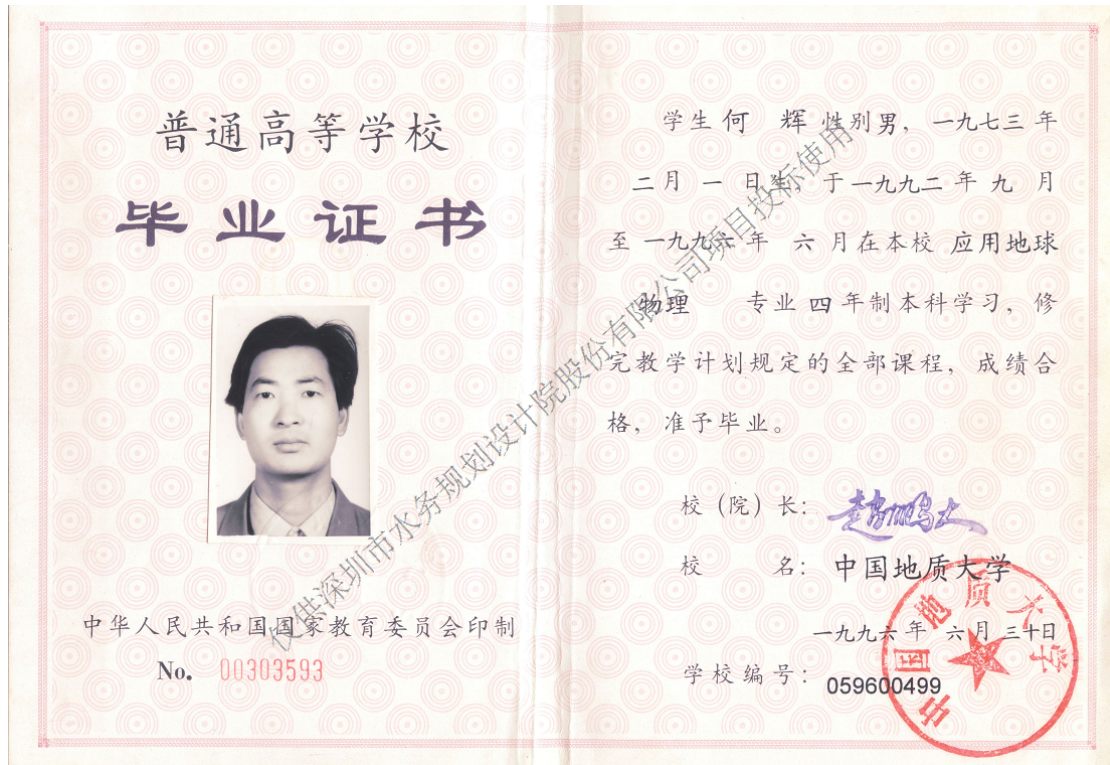 普通高等学校
毕业证书
中华人民共和国国家教育委员会印制
No. 00303593
学生何 辉 性别男，一九七三年
二月 一 日生 于一九九二年九月
至一九九六年 六月在本校 应用地球
物理 专业 四年制本科学习，修
完教学计划规定的全部课程，成绩合
格，准予毕业。
校（院）长：赵鹏大
校 名：中国地质大学
一九九六年 六月 三十日
学校编号：059600499
中国地质大学
仅供深圳市水务规划设计院股份有限公司项目投标使用